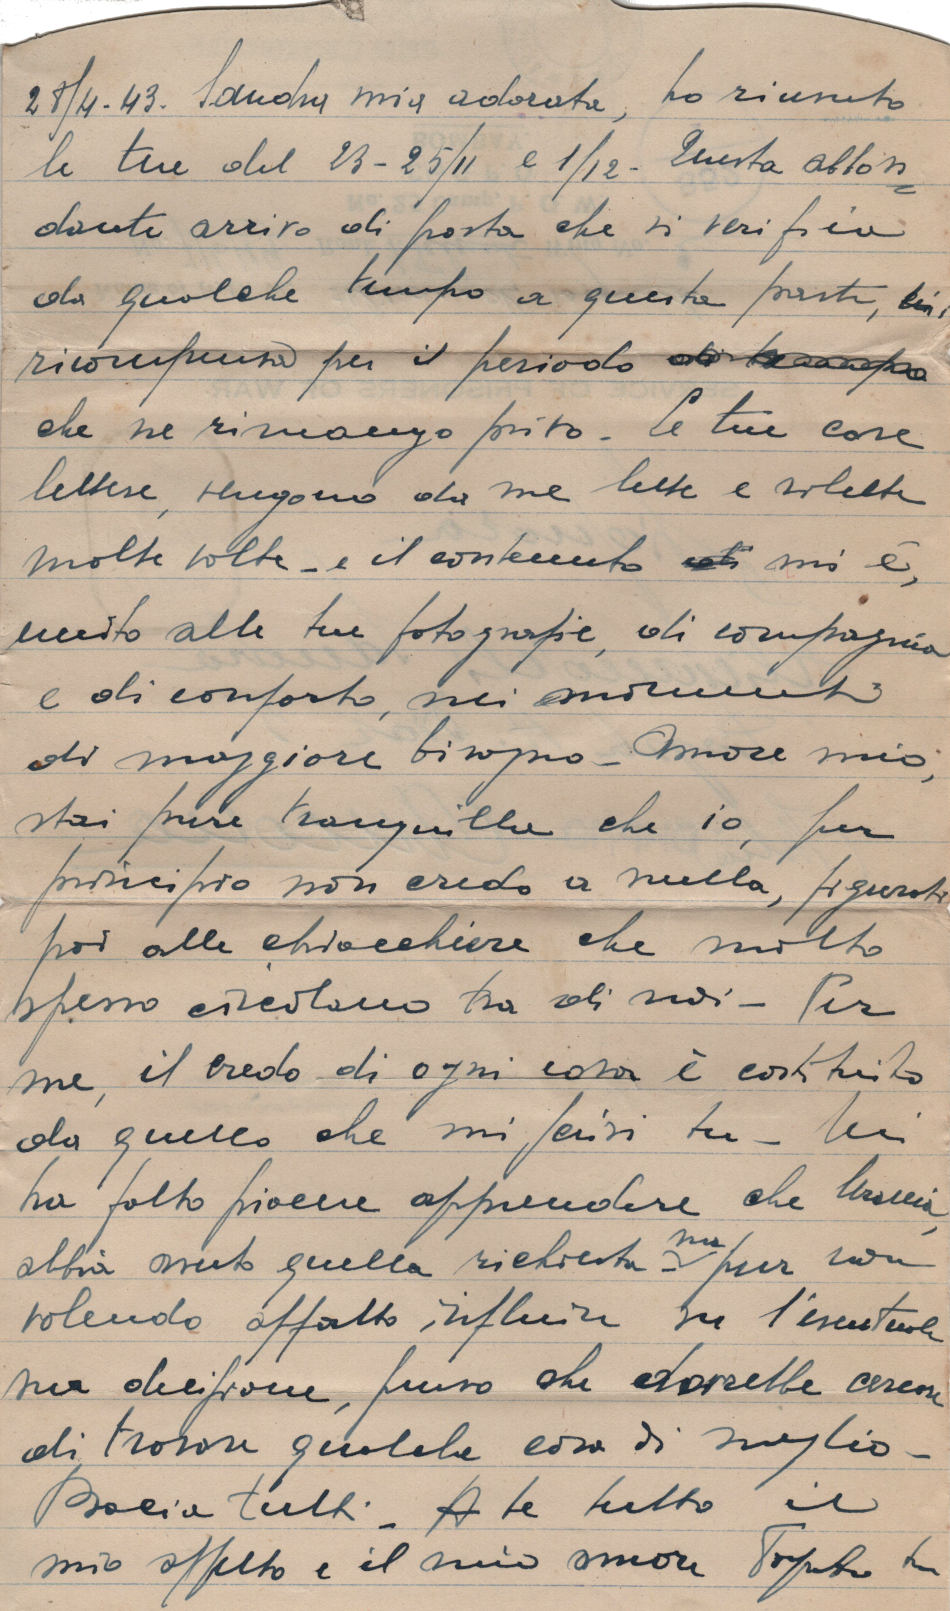 28/4-43. Sandra mia adorata, ho ricevuto
le tue del 23-25/11 e 1/12- Questa abbon=
dante arrivo di posta che si verifica
da qualche tempo a questa parte, mi
ricompensa per il periodo
che ne rimango privo - Le tue care
lettere, vengono da me lette e rilette
molte volte - e il contenuto mi è,
unito alle tue fotografie, di compagnia
e di conforto, nei momenti
di maggiore bisogno - Amore mio,
stai pure tranquilla che io, per
principio non credo a nulla, figurati
poi alle chiacchiere che molto
spesso circolano tra di noi - Per
me, il credo di ogni cosa è costituito
da quello che mi scrivi tu - Mi
ha fatto piacere apprendere che
abbia avuto quella richiesta - ma pur non
volendo affatto influire su l'eventuale
sua decisione, penso che dovrebbe cercare
di trovare qualche cosa di meglio -
Bacia tutti - A te tutto il
mio affetto e il mio amore tuo